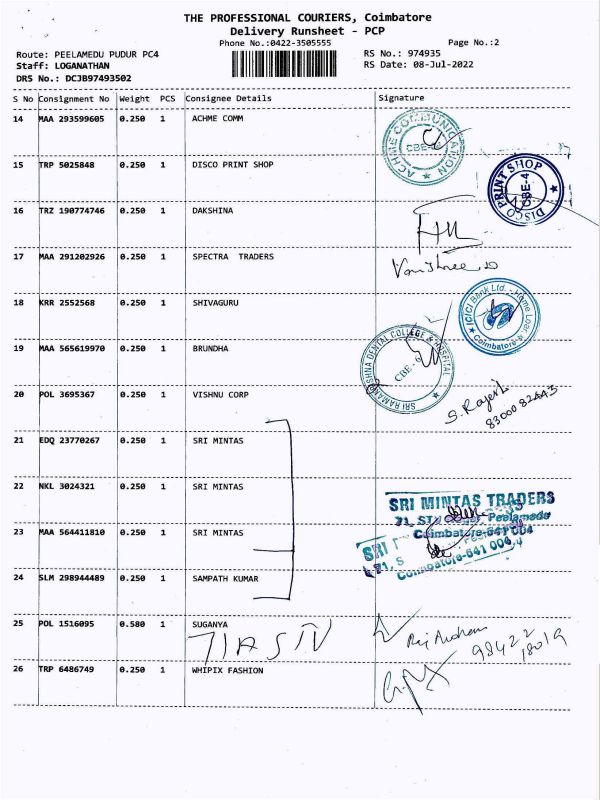 THE PROFESSIONAL COURIERS, Coimbatore
Delivery Runsheet - PCP
Phone No.:0422-3505555
Page No.:2
Route: PEELAMEDU PUDUR PC4
RS No.: 974935
Staff: LOGANATHAN
RS Date: 08-Jul-2022
DRS No.: DCJB97493502
S No Consignment No Weight PCS Consignee Details Signature
14 MAA 293599605 0.250 1 ACHME COMM
ACHME COMMUNICATION
CBE-4
15 TRP 5025848 0.250 1 DISCO PRINT SHOP
DISCO PRINT SHOP
CBE-4
16 TRZ 190774746 0.250 1 DAKSHINA
17 MAA 291202926 0.250 1 SPECTRA TRADERS
18 KRR 2552568 0.250 1 SHIVAGURU
ICICI Bank Ltd.- Home Loan
Coimbatore
19 MAA 565619970 0.250 1 BRUNDHA
SRI RAMAKRISHNA DENTAL COLLEGE & HOSPITAL
CBE-6
20 POL 3695367 0.250 1 VISHNU CORP
S. Rajesh
83000 82443
21 EDQ 23770267 0.250 1 SRI MINTAS
22 NKL 3024321 0.250 1 SRI MINTAS
SRI MINTAS TRADERS
Peelamedu
23 MAA 564411810 0.250 1 SRI MINTAS
Coimbatore-641 004
SRI
Coimbatore-641 004
24 SLM 298944489 0.250 1 SAMPATH KUMAR
25 POL 1516095 0.580 1 SUGANYA
98422
18019
26 TRP 6486749 0.250 1 WHIPIX FASHION